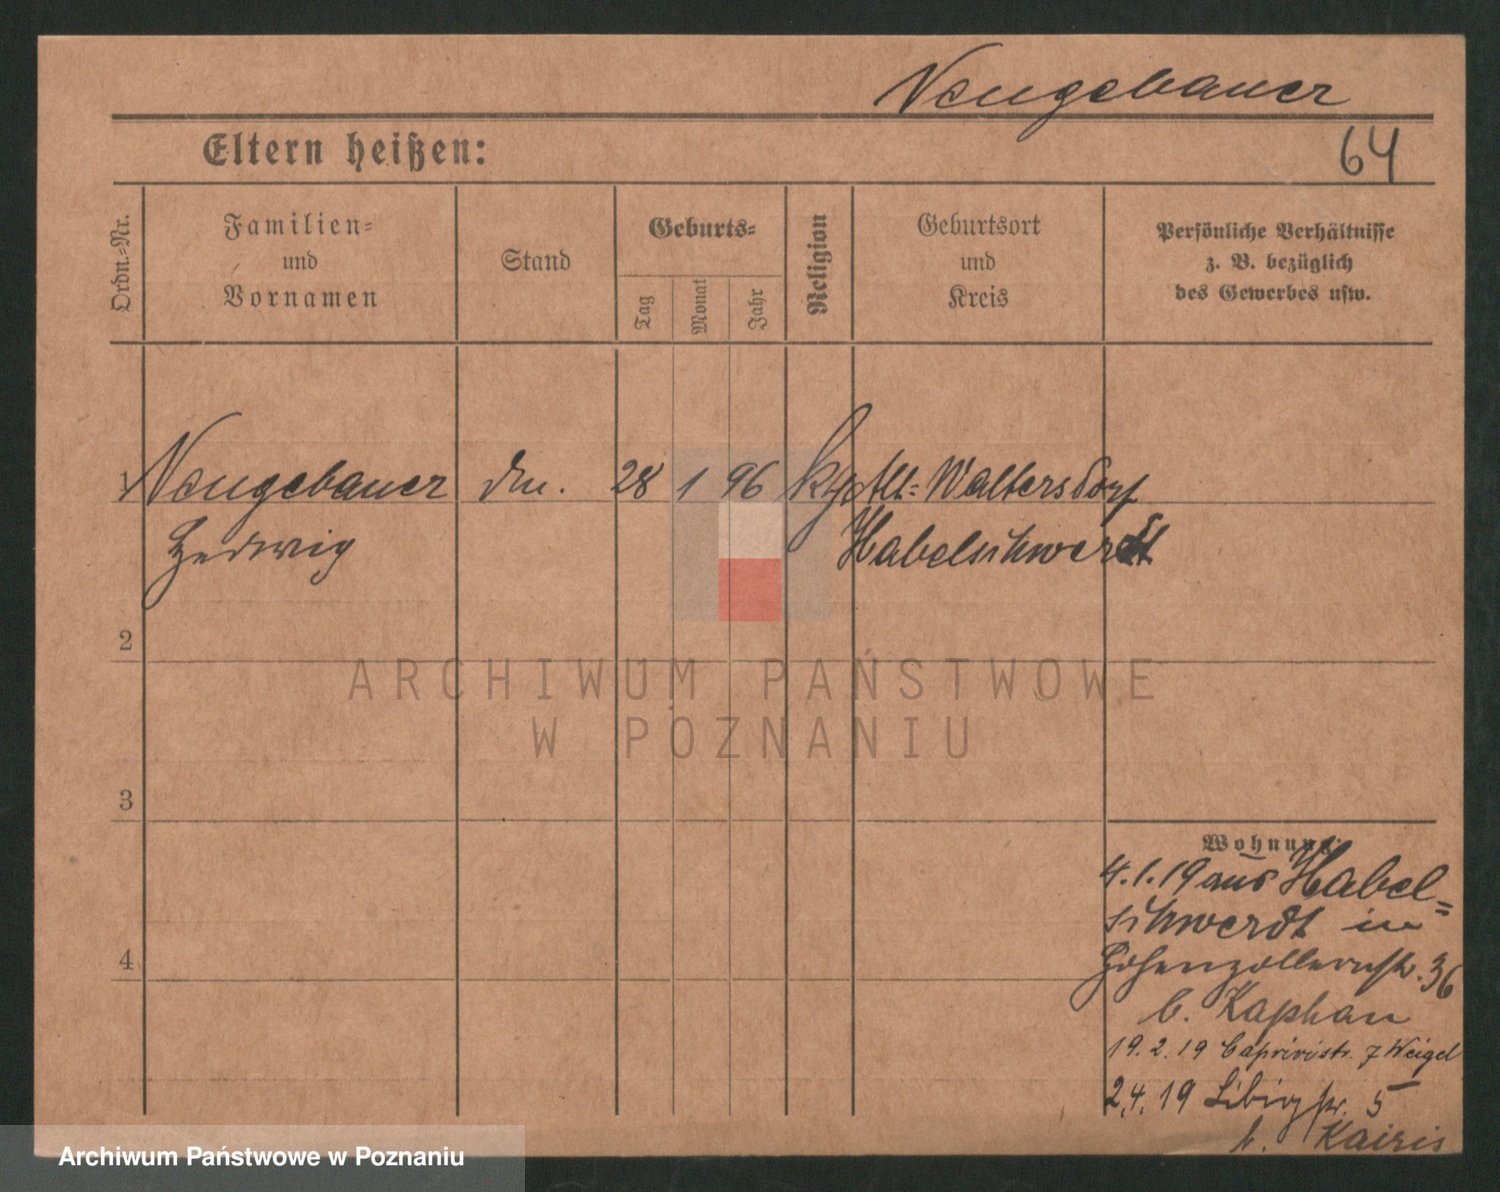 Neugebauer
64
Eltern heißen:
Ordn.-Nr.
Familien-
und
Vornamen
Stand
Geburts-
Tag
Monat
Jahr
Religion
Geburtsort
und
Kreis
Persönliche Verhältnisse
z. B. bezüglich
des Gewerbes usw.
1 Neugebauer 28 1 96 Alt-Waltersdorf
Hedwig Habelschwerdt
2
ARCHIWUM PAŃSTWOWE
W POZNANIU
3
Wohnung:
4.1.19 aus Habel=
schwerdt in
4
Hohenzollernstr. 36
b. Kaphan
19.2.19 Caprivistr. 7 Weigel
2.4.19 Libigstr. 5
b. Kairis
Archiwum Państwowe w Poznaniu